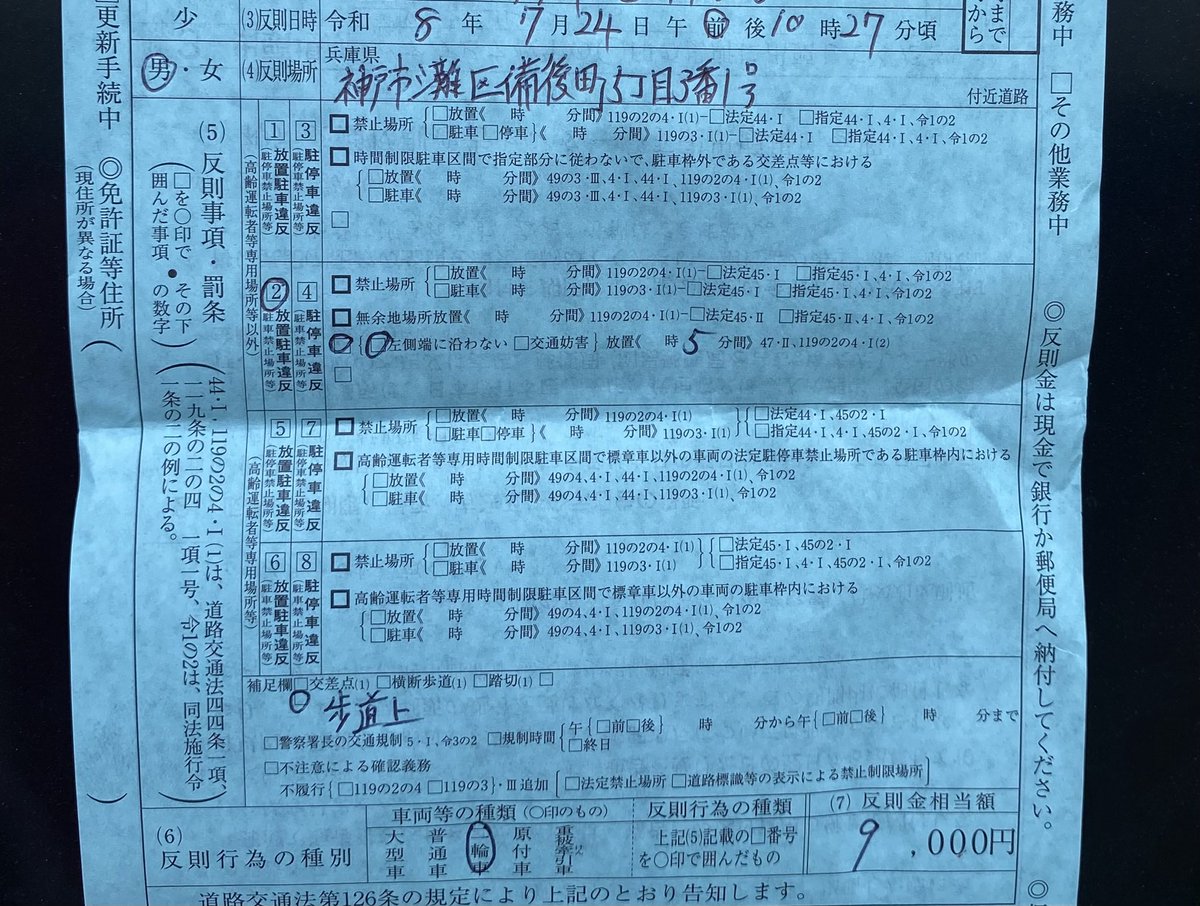 少
(3)反則日時 令和 8 年 7月24日午前後10時27分頃
まで
から
男・女
(4)反則場所
兵庫県
神戸市灘区備後町5丁目3番1号
付近道路
更新手続中 ◎免許証等住所
(現住所が異なる場合)
(5)反則事項・罰条
(□を○印で囲んだ事項 ● その下の数字)
44・I・119の2の4・I(1)は、道路交通法四四条一項、一一九条の二の四 一項一号、令1の2は、同法施行令一条の二の例による。
(高齢運転者等専用場所等以外)
1 放置駐車違反(駐停車禁止場所等)
3 駐停車違反(駐停車禁止場所等)
□禁止場所
□放置《 時 分間》119の2の4・I(1)-□法定44・I □指定44・I、4・I、令1の2
□駐車 □停車}《 時 分間》119の3・I(1)-□法定44・I □指定44・I、4・I、令1の2
□時間制限駐車区間で指定部分に従わないで、駐車枠外である交差点等における
□放置《 時 分間》49の3・Ⅲ、4・I、44・I、119の2の4・I(1)、令1の2
□駐車《 時 分間》49の3・Ⅲ、4・I、44・I、119の3・I(1)、令1の2
□
2 放置駐車違反(駐車禁止場所等)
4 駐停車違反(駐車禁止場所等)
□禁止場所
□放置《 時 分間》119の2の4・I(1)-□法定45・I □指定45・I、4・I、令1の2
□駐車《 時 分間》119の3・I(1)-□法定45・I □指定45・I、4・I、令1の2
□無余地場所放置《 時 分間》119の2の4・I(1)-□法定45・Ⅱ □指定45・Ⅱ、4・I、令1の2
左側端に沿わない □交通妨害} 放置《 時 5 分間》47・Ⅱ、119の2の4・I(2)
□
(高齢運転者等専用場所等)
5 放置駐車違反(駐停車禁止場所等)
7 駐停車違反(駐停車禁止場所等)
□禁止場所
□放置《 時 分間》119の2の4・I(1)
□駐車□停車《 時 分間》119の3・I(1)
□法定44・I、45の2・I
□指定44・I、4・I、45の2・I、令1の2
□高齢運転者等専用時間制限駐車区間で標章車以外の車両の法定駐停車禁止場所である駐車枠内における
□放置《 時 分間》49の4、4・I、44・I、119の2の4・I(1)、令1の2
□駐車《 時 分間》49の4、4・I、44・I、119の3・I(1)、令1の2
6 放置駐車違反(駐車禁止場所等)
8 駐停車違反(駐車禁止場所等)
□禁止場所
□放置《 時 分間》119の2の4・I(1)
□駐車《 時 分間》119の3・I(1)
□法定45・I、45の2・I
□指定45・I、4・I、45の2・I、令1の2
□高齢運転者等専用時間制限駐車区間で標章車以外の車両の駐車枠内における
□放置《 時 分間》49の4、4・I、119の2の4・I(1)、令1の2
□駐車《 時 分間》49の4、4・I、119の3・I(1)、令1の2
補足欄□交差点(1) □横断歩道(1) □踏切(1) □
歩道上
□警察署長の交通規制 5・I、令3の2 □規制時間 午{□前□後} 時 分から午{□前□後} 時 分まで
□終日
□不注意による確認義務
不履行{□119の2の4 □119の3}・Ⅲ追加 □法定禁止場所 □道路標識等の表示による禁止制限場所
(6)
反則行為の種別
車両等の種類(○印のもの)
大型車
普通車
輪車
原付車
重被牽引車
反則行為の種類
上記(5)記載の□番号
を○印で囲んだもの
(7) 反則金相当額
9,000円
道路交通法第126条の規定により上記のとおり告知します。
務中 □その他業務中
◎反則金は現金で銀行か郵便局へ納付してください。
◎